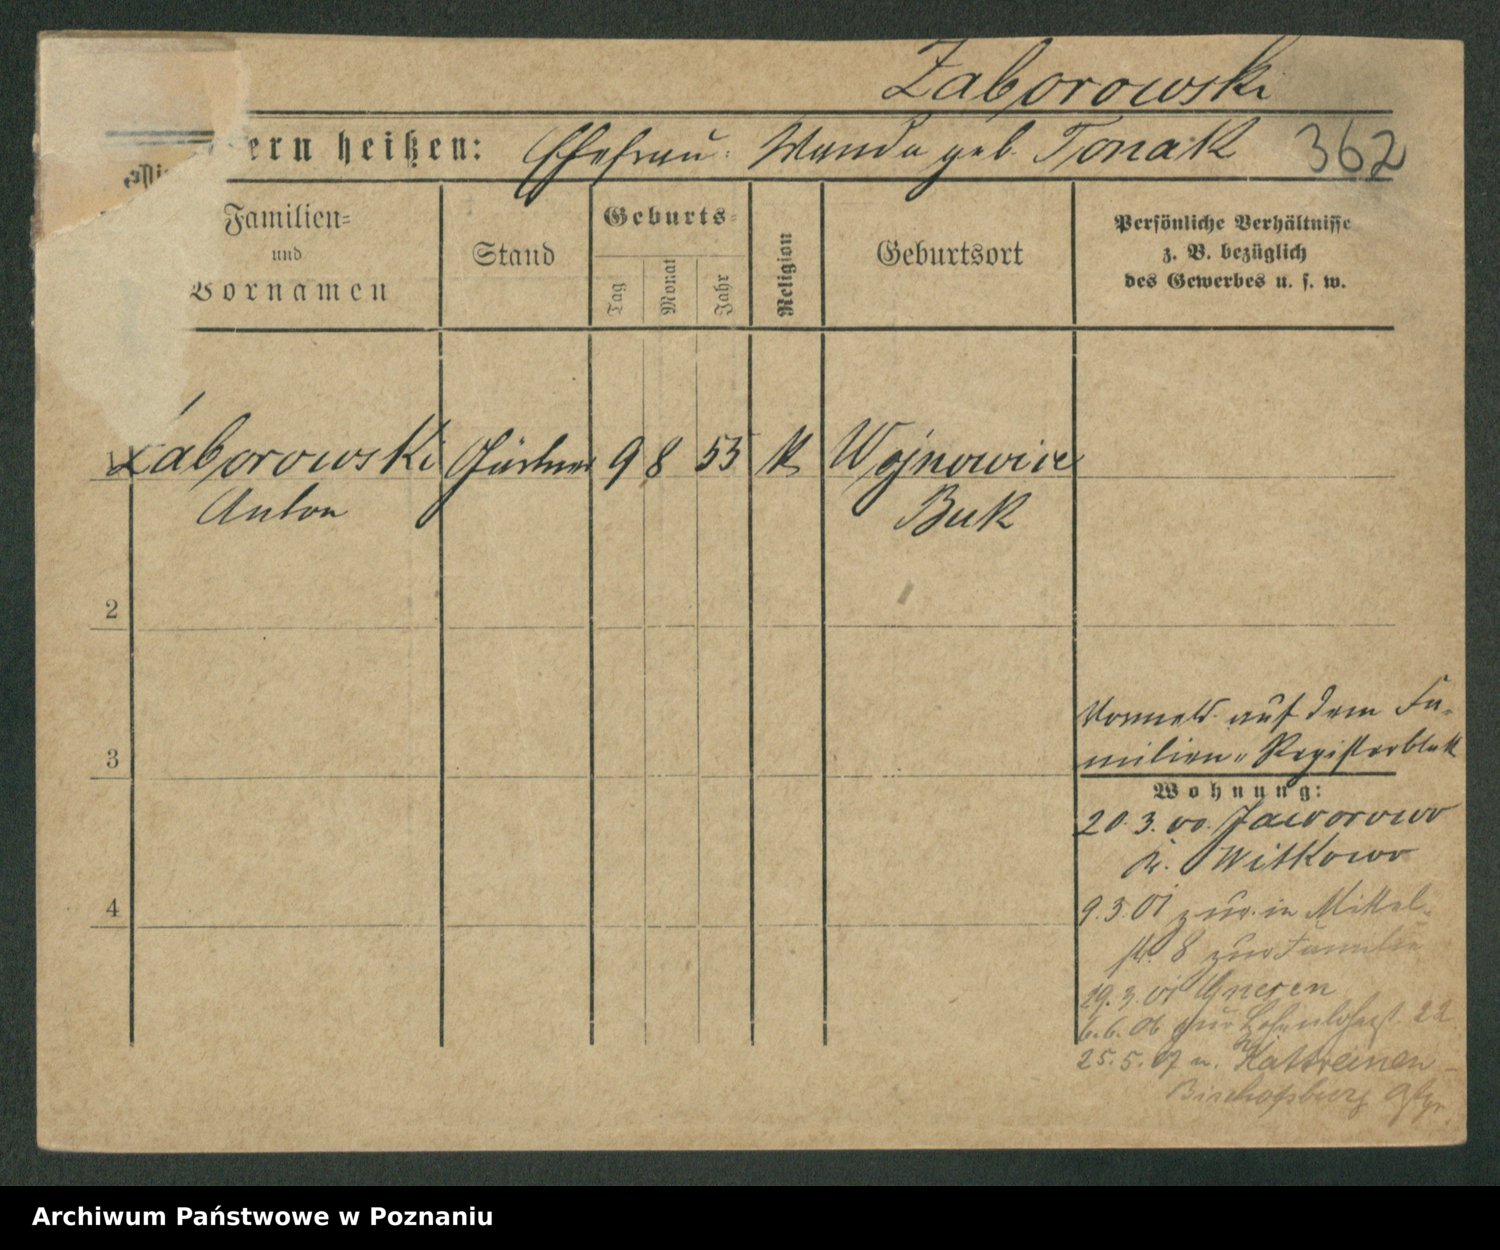 Zaborowski
ern heißen: Ehefrau: Wanda geb. Tonak 362
Familien=
und
Vornamen
Stand
Geburts=
Tag
Monat
Jahr
Religion
Geburtsort
Persönliche Verhältnisse
z. B. bezüglich
des Gewerbes u. s. w.
Zaborowski Gärtner 9 8 53 k Wojnowice
Anton Buk
2
3
4
auf dem Fa-
milien-Registerblatt
Wohnung:
20.3.00. Jaworowo
k. Witkowo
9.3.01 zur. in Mittel-
str. 8 zur Familie
19.3.01 Gnesen
6.6.06 22
25.5.07 n. Kattreinen
Bischofsburg
Archiwum Państwowe w Poznaniu